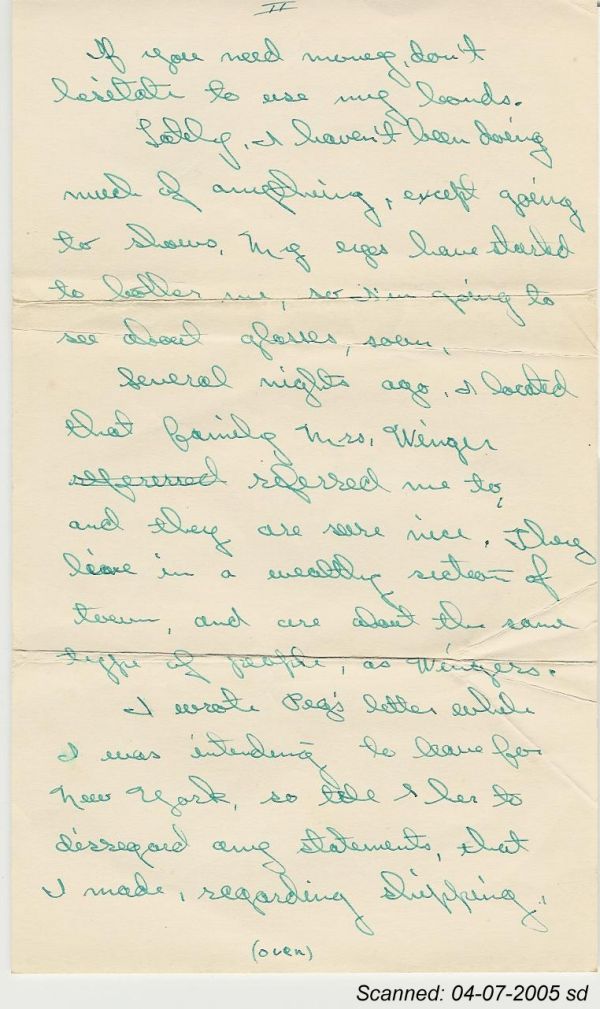 II
If you need money, don't
hesitate to use my bonds.
Lately, I haven't been doing
much of anything, except going
to shows. My eyes have started
to bother me, so I'm going to
see about glasses, soon.
Several nights ago, I located
that family Mrs. Winger
referred referred me to,
and they are sure nice. They
live in a wealthy section of
town, and are about the same
type of people, as Wingers.
I wrote Peg's letter while
I was intending to leave for
New York, so tell her to
disregard any statements, that
I made, regarding shipping.
(over)
Scanned: 04-07-2005 sd